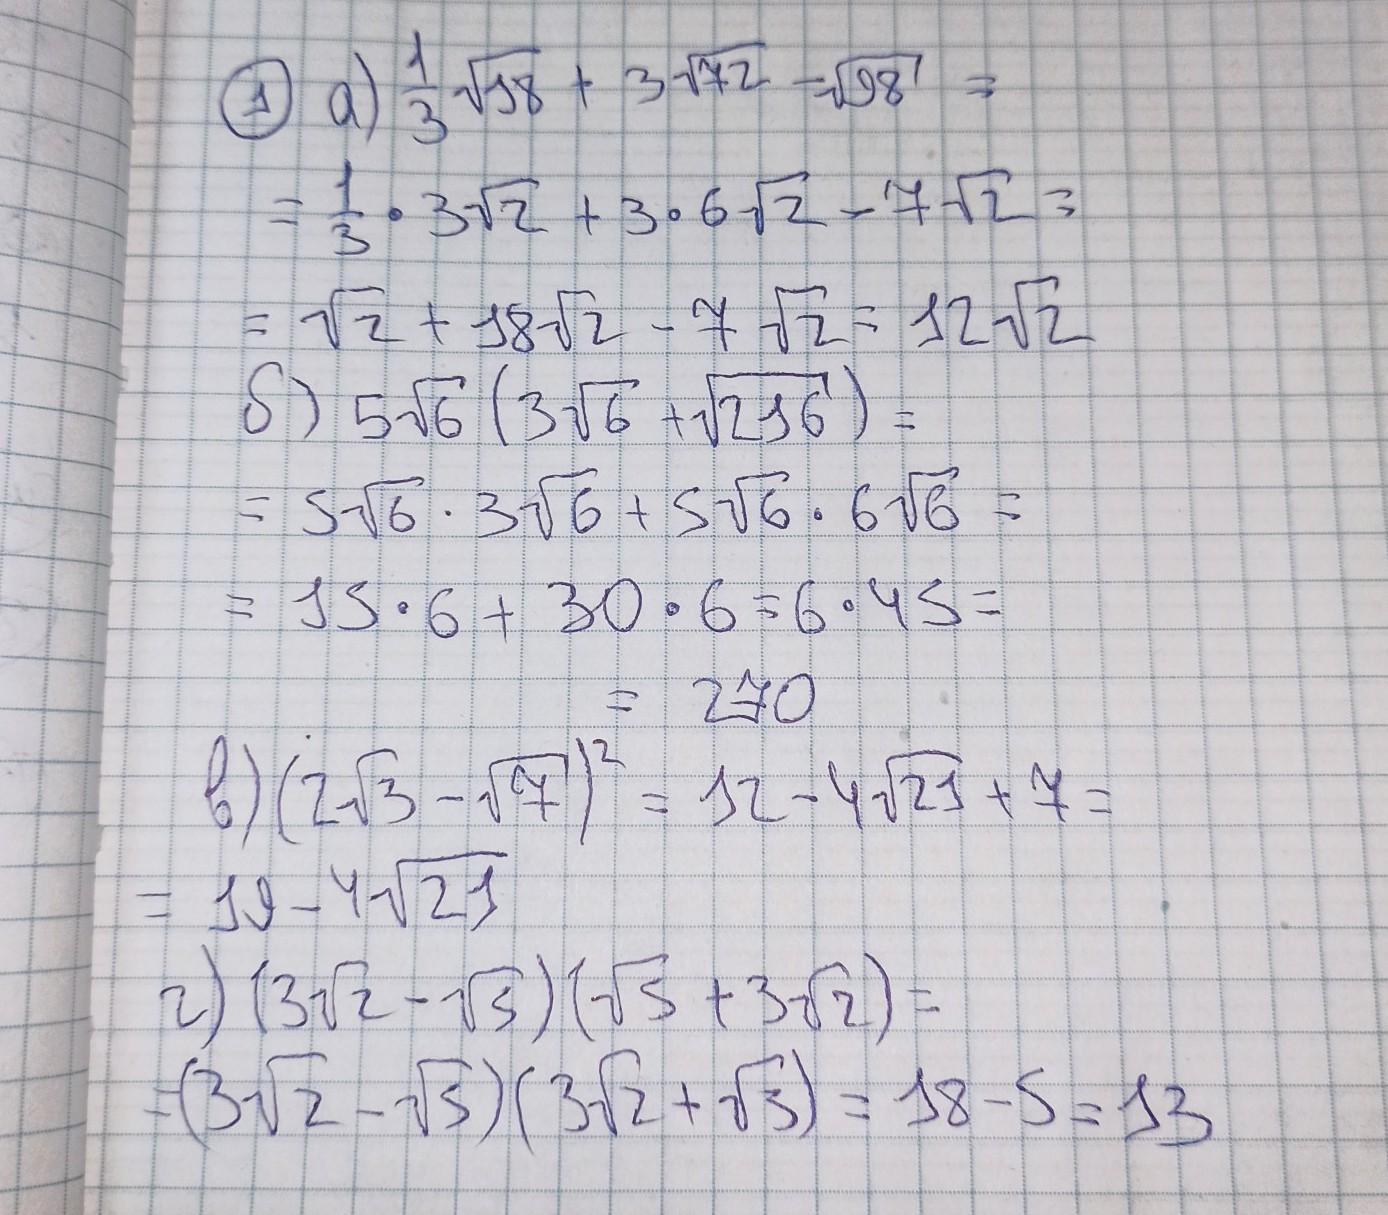 ① а) 1/3 √18 + 3√72 - √98 =
= 1/3 · 3√2 + 3·6√2 - 7√2 =
= √2 + 18√2 - 7√2 = 12√2
б) 5√6 (3√6 + √216) =
= 5√6 · 3√6 + 5√6 · 6√6 =
= 15·6 + 30·6 = 6·45 =
= 270
в) (2√3 - √7)² = 12 - 4√21 + 7 =
= 19 - 4√21
г) (3√2 - √5)(√5 + 3√2) =
= (3√2 - √5)(3√2 + √5) = 18 - 5 = 13